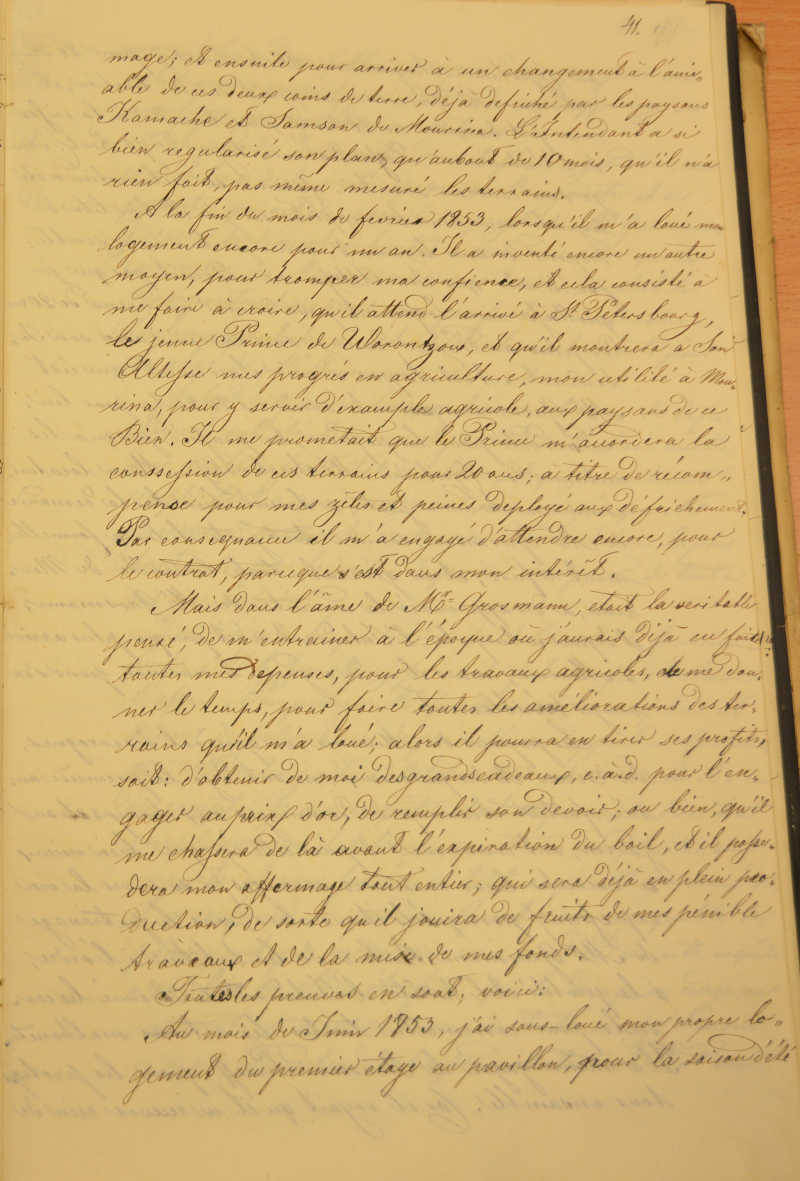 41.
mage; et ensuite pour arriver à un changement à l'ami-
able de ces deux coins de terre, déjà defriché par les paysans
Kamache et Samson de Mourina. L'Intendant a si
bien regularisé son plan, qu'aubout de 10 mois, qu'il n'a
rien fait, pas même mesuré les terrains.
A la fin du mois de fevrier 1853, lorsqu'il m'a loué mon
logement encore pour un an. Il a inventé encore un autre
moyen, pour tromper ma confience, et cela consisté à
me faire à croire, qu'il attend l'arrivé à St Pétersbourg,
le jeune Prince de Worontzow, et qu'il montrera a Son
Altesse mes progrés en agriculture, mon utilité à Mou-
rina, pour y servir d'example agricole, aux paysans de ce
Bien. Il me prometait que le Prince m'accordera la
conssession de ces terrains pour 20 ans; a titre de récom-
pense pour mes zèles et peines deployé aux défrichement.
Par consequance il m'a engagé d'attendre encore, pour
le contrat, parceque s'est dans mon intérêt.
Mais dans l'âme de Mr Grosmann, etait la veritable
pensé, de m'entrainer à l'époque où j'aurais déjà eu fait
toutes mes depenses, pour les travaux agricoles, de me don-
ner le temps, pour faire toutes les améliorations des ter-
rains qu'il m'a loué; alors il pourra en tirer ses profits,
soit: d'obtenir de moi des grands cadeaux, c. a. d. pour l'en-
gager au prix d'or, de remplir son devoir; ou bien, qu'il
me chassera de là avant l'expiration du bail, et il posse-
dera mon affermage tout entier; qui sera déjà en plein pro-
duction, de sorte qu'il jouira de fruits de mes pénible
travaux et de la mise de mes fonds.
Toutes les preuves en sont, voici:
Au mois de Juin 1853, j'ai sous-loué mon propre lo-
gement du premier etage au pavillon, pour la saison d'été